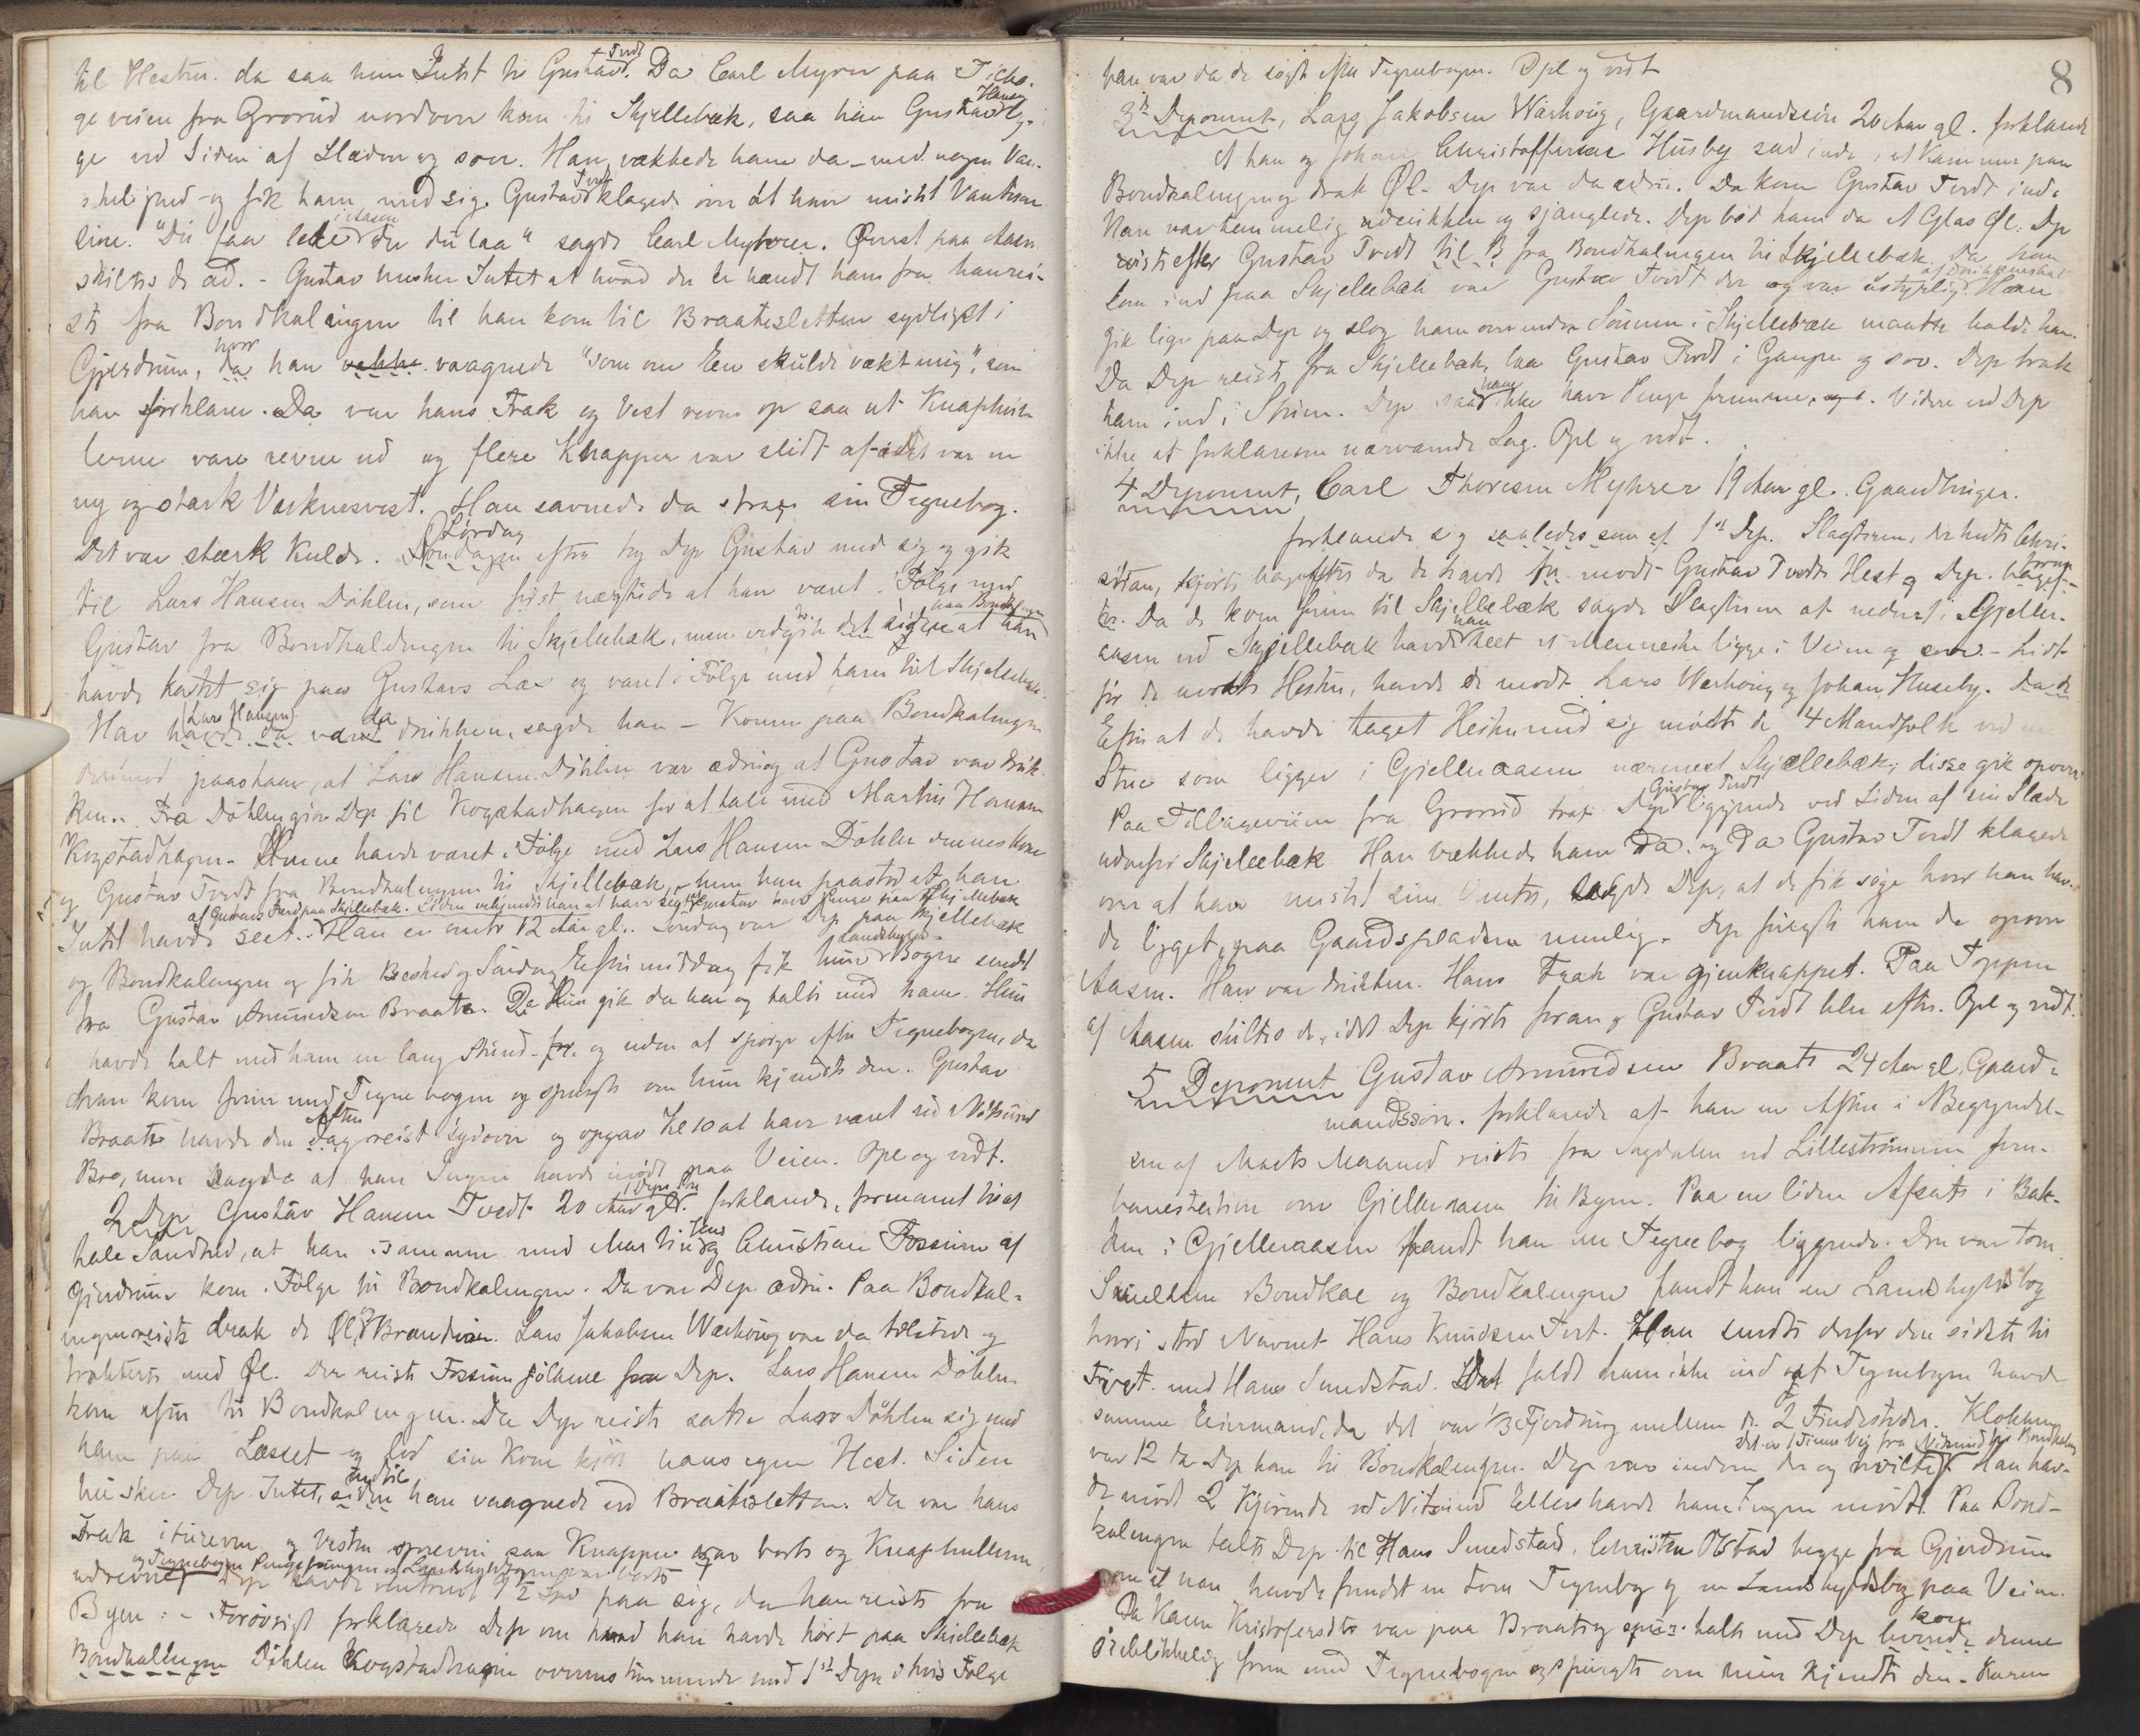 til Hesten. da saa hun Intet til Gustav Tvedt. Da Carl Myrer paa Tilba-
geveien fra Grorud nordover kom til Skjellebæk, saa han Gustav Hansen lig-
ge ved Siden af Slæden og sove. Han vækkede ham da – med nogen Van-
skelighed – og fik ham med sig. Gustav Tvedt klagede over at have mistet Vanterne
sine. "Du faa lede i Aasen der du laa" sagde Carl Myhrer. Øverst paa Aasen
skiltes de ad. – Gustav husker Intet af hvad der er hændt ham fra han rei-
ste fra Bondkalingen til han kom til Braatesletten sydligst i
Gjerdrum, da hvor han vaagnede "som om Een skulde vækt mig", som
han forklarer. Da var hans Frak og Vest reven op saa at Knaphul-
lerne vare revne ud og flere Knapper var slidt af – det var en
ny og stærk Verkensvest. Han savnede da strax sin Tegnebog.
Det var stærk Kulde. Søndagen Lørdag efter tog Dep Gustav med sig og gik
til Lars Hansen Döhlen, som först nægtede at han været i Følge med
Gustav fra Bondkalingen til Skjellebæk, men vedgik det siden at han paa Bondkalingen
havde kastet sig paa Gustavs Læs og været i Følge med ham til Skjellebæk.
Han (Lars Hansen) havde da været da drukken, sagde han – Konen paa Bondkalingen
derimod paastaar, at Lars Hansen Döhlen var ædru og at Gustav var druk-
ken. – Fra Döhlen gik Dep til Kogstadhagen for at tale med Martin Hansen
Kogstadhagen. Denne havde været i Følge med Lars Hansen Döhlen dennes Kone
og Gustav Tvedt fra Bondkalingen til Skjellebæk, – men han paastod at han
Intet havde seet af Gustavs Færd paa Skjellebæk. Siden erkjendte han at have seet Gustav have Penge paa Skjellebæk. Han er omtr 12 Aar gl. Søndag var Dep paa Skjellebæk
og Bondkalingen og fik Besked og Søndag Eftermiddag fik hun Landskyld-Bogen sendt
fra Gustav Amundsen Braate. Da Hun gik da hen og talte med ham. Hun
havde talt med ham en lang Stund – og uden at spørge efter Tegnebogen, da
han kom frem med Tegnebogen og spurgte om hun kjendte den. Gustav
Braate havde den Dag Aften reist sydover og opgav Kl 10 at have været ved Nitsund
Bro, men sagde at han Ingen havde mødt paa Veien. Opl og vedt.
2 Dep Gustav Hansen Tvedt 20 Aar gl. Deps Søn forklarede, formanet til at
tale Sandhed, at han isammen med Martin Jens og Christian Fossum af
Gjerdrum kom i Følge til Bondkalingen. Da var Dep ædru. Paa Bondkal-
ingen reiste drak de Øl og Brændevin. Lars Jakobsen Wærhoug var da tilstede og
trakterte med Øl. Der reiste Fossum fölkene fra Dep. Lars Hansen Döhlen
kom efter til Bondkalingen. Da Dep reiste satte Lars Döhlen sig med
ham paa Læsset og lod sin Kone kjøre hans egen Hest. Siden
husker Dep Intet, siden indtil han vaagnede ved Braatesletten. Da var hans
Frak itureven og Vesten opreven saa Knapper var borte og Knaphullerne
udrevne, og Tegnebogen Pengepungen og Landskyldbogen var borte Dep havde omtrent 1½ Spd paa sig, da han reiste fra
Byen: – Forøvrigt forklarede Dep om hvad han havde hört paa Skjellebæk
Bondkallingen Döhlen Kogstadhagen overensstemmende med 1ste Dep i hvis Følge
8
han var da de søgte efter Tegnebogen. Opl og vedt
3die Deponent, Lars Jakobsen Wærhoug, Gaardmandssön 20 Aar gl. forklarede
At han og Johan Christoffersen Husby sad inde i et Kammer paa
Bondkalingen og drak Øl. – Dep var da ædru. Da kom Gustav Tvedt ind.
Han var temmelig udrukken og sjanglede. Dep bød ham da et Glas Øl. Dep
reiste efter Gustav Tvedt til B fra Bondkalingen til Skjellebæk. Da han
kom ind paa Skjellebæk var Gustav Tvedt der og var ustyrlig af Drukkenskab. Han
gik lige paa Dep og slog ham overende. Sønnen i Skjellebæk maatte holde ham.
Da Dep reiste fra Skjellebæk, laa Gustav Tvedt i Gangen og sov. Dep trak
ham ind i Stuen. Dep saa ham ikke have Penge fremme. Videre ved Dep
ikke at forklare om nærværende Sag. Opl og vedt.
4 Deponent, Carl Thoresen Myhrer 19 Aar gl. Gaardbruger.
forklarede sig saaledes som af 1ste Dep. Slagteren, der hedte Chri-
stian, kjørte bagefter da de havde mødt Gustav Tvedts Hest og Dep. foran
Da de kom frem til Skjellebæk sagde Slagteren at nederst i Gjeller-
aasen ved Skjellebæk havde han seet et Menneske ligge i Veien og sove. – Lidt
før de mødte Hesten, havde de mødt Lars Wærhoug og Johan Huseby. Da de
Efter at de havde taget Hesten med sig mødte de 4 Mandfolk ved en
Stue som ligger i Gjelleraasen nærmest Skjællebæk; disse gik opover.
Paa Tilbageveien fra Grorud traf Dep Gustav Tvedt liggende ved Siden af sin Slæde
udenfor Skjellebæk. Han vækkede ham da og da Gustav Tvedt klagede
over at have mistet sine Vanter, sagde Dep, at de fik søge hvor han hav-
de ligget, paa Gaardspladsen nemlig. Dep fulgte ham da opover
Aasen. Han var drukken. Hans Frak var gjenknappet. Paa Toppen
af Aasen skiltes de, idet Dep kjørte foran og Gustav Tvedt blev efter. Opl og vedt.
5 Deponent Gustav Amundsen Braate 24 Aar gl. Gaard-
mandssön. forklarede at han en Aften i Begyndel-
sen af Marts Maaned reiste fra Sagdalen ved Lillestrømmen Jern-
banestation over Gjelleraasen til Byen. Paa en liden Afsats i Bak-
ken i Gjelleraasen fandt han en Tegnebog liggende. Den var tom.
Imellem Bondkal og Bondkalingen fandt han en Landskyldsbog
hvori stod Navnet Hans Knudsen Tvet. Han sendte derfor den sidste til
Tvet. med Hans Smedstad. Det faldt ham ikke ind at Tegnebogen havde
samme Eiermand, da det var 1/3 Fjerding mellem de 2 Findesteder. Klokken
var 12 da Dep kom til Bondkalingen. Dep var indom der og hvilte. Det er 1 Times Vej fra Nitsund til Bondkaling Han hav-
de mødt 2 Kjørende ved Nitsund Ellers havde han Ingen mødt. Paa Bond-
kalingen talte Dep til Hans Smedstad, Christen Ulstad begge fra Gjerdrum
om at han havde fundet en tom Tegnebog og en Landskyldsbog paa Veien.
Da Karen Kristofersdtr var paa Braate og talte med Dep kom denne
öieblikkelig frem med Tegnebogen og spurgte om hun kjendte den. – Karen